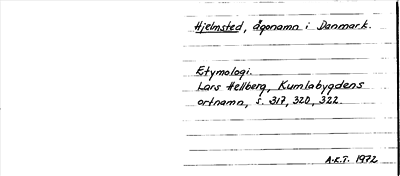 Hjelmsted, ågonamn i Danmark.
Etymologi.
Lars Hellberg, Kumlabygdens
ortnamn, s. 317, 320, 322.
A.K.T. 1972